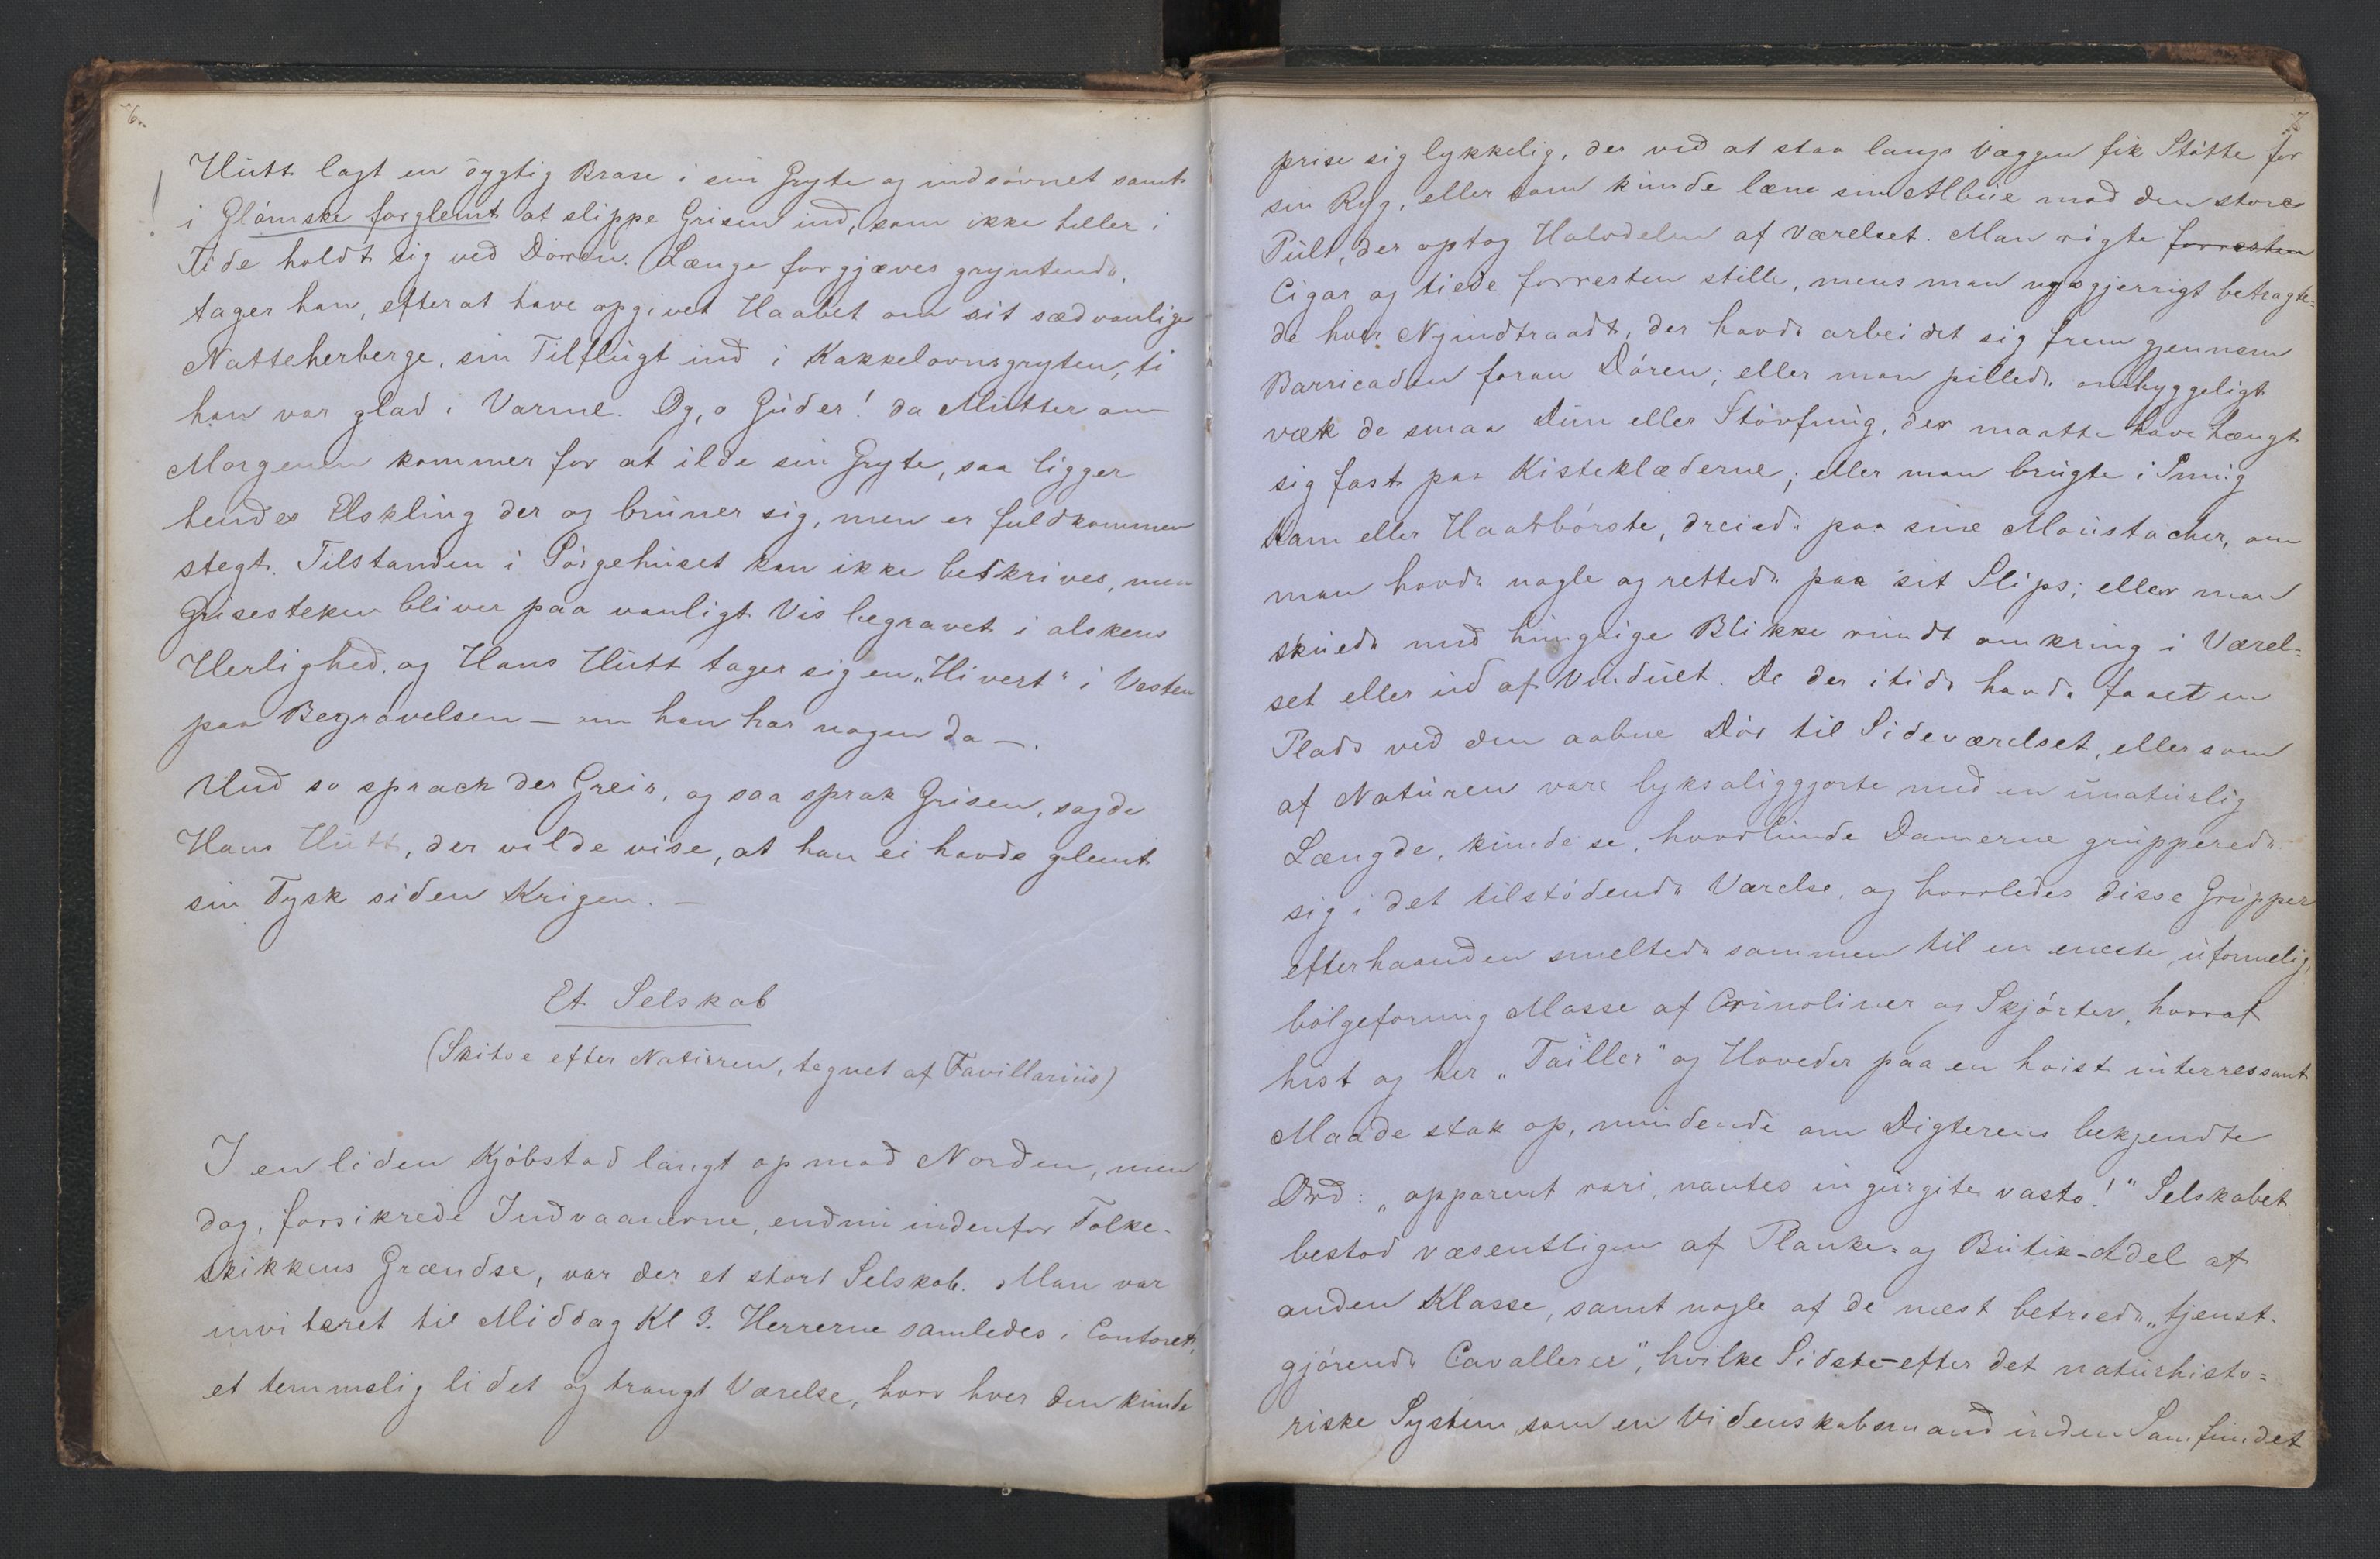 6.
Hütt lagt en dygtig Brase i sin Gryte og indsövnet samt
i Glömske forglemt at slippe Grisen ind, som ikke heller i
Tide holdt sig ved Dören. Længe forgjæves gryntende,
tager han, efterat have opgivet Haabet om sit sædvanlige
Natteherberge, sin Tilflugt ind i Kakkelovnsgryten, ti
han var glad i Varme. Og, o Guder! da Mutter om
Morgenen kommer for at ilde sin Gryte, saa ligger
hendes Elskling der og bruner sig, men er fuldkommen
stegt. Tilstanden i Sörgehuset kan ikke beskrives, men
Grisesteken bliver paa vanligt Vis begravet i alskens
Herlighed, og Hans Hütt tager sig en „Hivert" i Vesten
paa Begravelsen — om han har nogen da —.
Und so sprach der Greis, og saa sprak Grisen, sagde
Hans Hütt, der vilde vise, at han ei havde glemt
sin Tysk siden Krigen. —
Et Selskab
(Skitse efter Naturen, tegnet af Favillarius)
I en liden Kjöbstad langt op mod Norden, men
dog, forsikrede Indvaanerne, endnu indenfor Folke-
skikkens Grændse, var der et stort Selskab. Man var
inviteret til Middag Kl 3. Herrerne samledes i Contoret,
et temmelig lidet og trangt Værelse, hvor hver den kunde
7
prise sig lykkelig, der ved at staa langs Væggen fik Stötte for
sin Ryg, eller som kunde læne sin Albue mod den store
Pult, der optog Halvdelen af Værelset. Man rögte forresten
Cigar og tiede forresten stille, mens man nysgjerrigt betragte-
de hver Nyindtraadt, der havde arbeidet sig frem gjennem
Barricaden foran Dören; eller man pillede omhyggeligt
væk de smaa Dun eller Stövfnug, der maatte have hængt
sig fast paa Kisteklæderne; eller man brugte i Smug
Kam eller Haarbörste, dreiede paa sine Moustacher, om
man havde nogle og rettede paa sit Slips; eller man
skuede med hungrige Blikke rundt omkring i Værel-
set eller ud af Vinduet. De der itide havde faaet en
Plads ved den aabne Dör til Sideværelset, eller som
af Naturen vare lyksaliggjorte med en unaturlig
Længde, kunde se, hvorlunde Damerne grupperede
sig i det tilstödende Værelse, og hvorledes disse Grupper
efterhaanden smeltede sammen til en eneste, uformelig,
bölgeformig Masse af Crinoliner og Skjörter, hvoraf
hist og her „Tailler" og Hoveder paa en höist interressant
Maade stak op, mindende om Digterens bekjendte
Ord: „apparent rari, nantes in gurgite vasto!" Selskabet
bestod væsentligen af Planke- og Butik-Adel af
anden Klasse, samt nogle af de mest betroede „tjenst-
gjörende Cavallerer", hvilke Sidste - efter det naturhisto-
riske System som en Videnskabsmand inden Samfundet